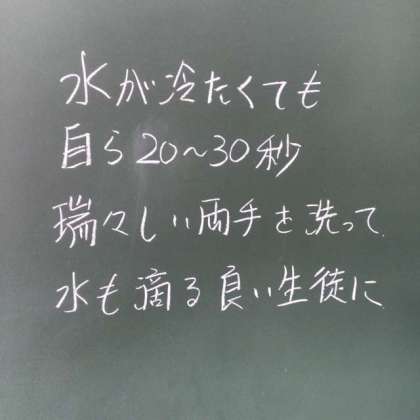 水が冷たくても
自ら20~30秒
瑞々しい両手を洗って
水も滴る良い生徒に